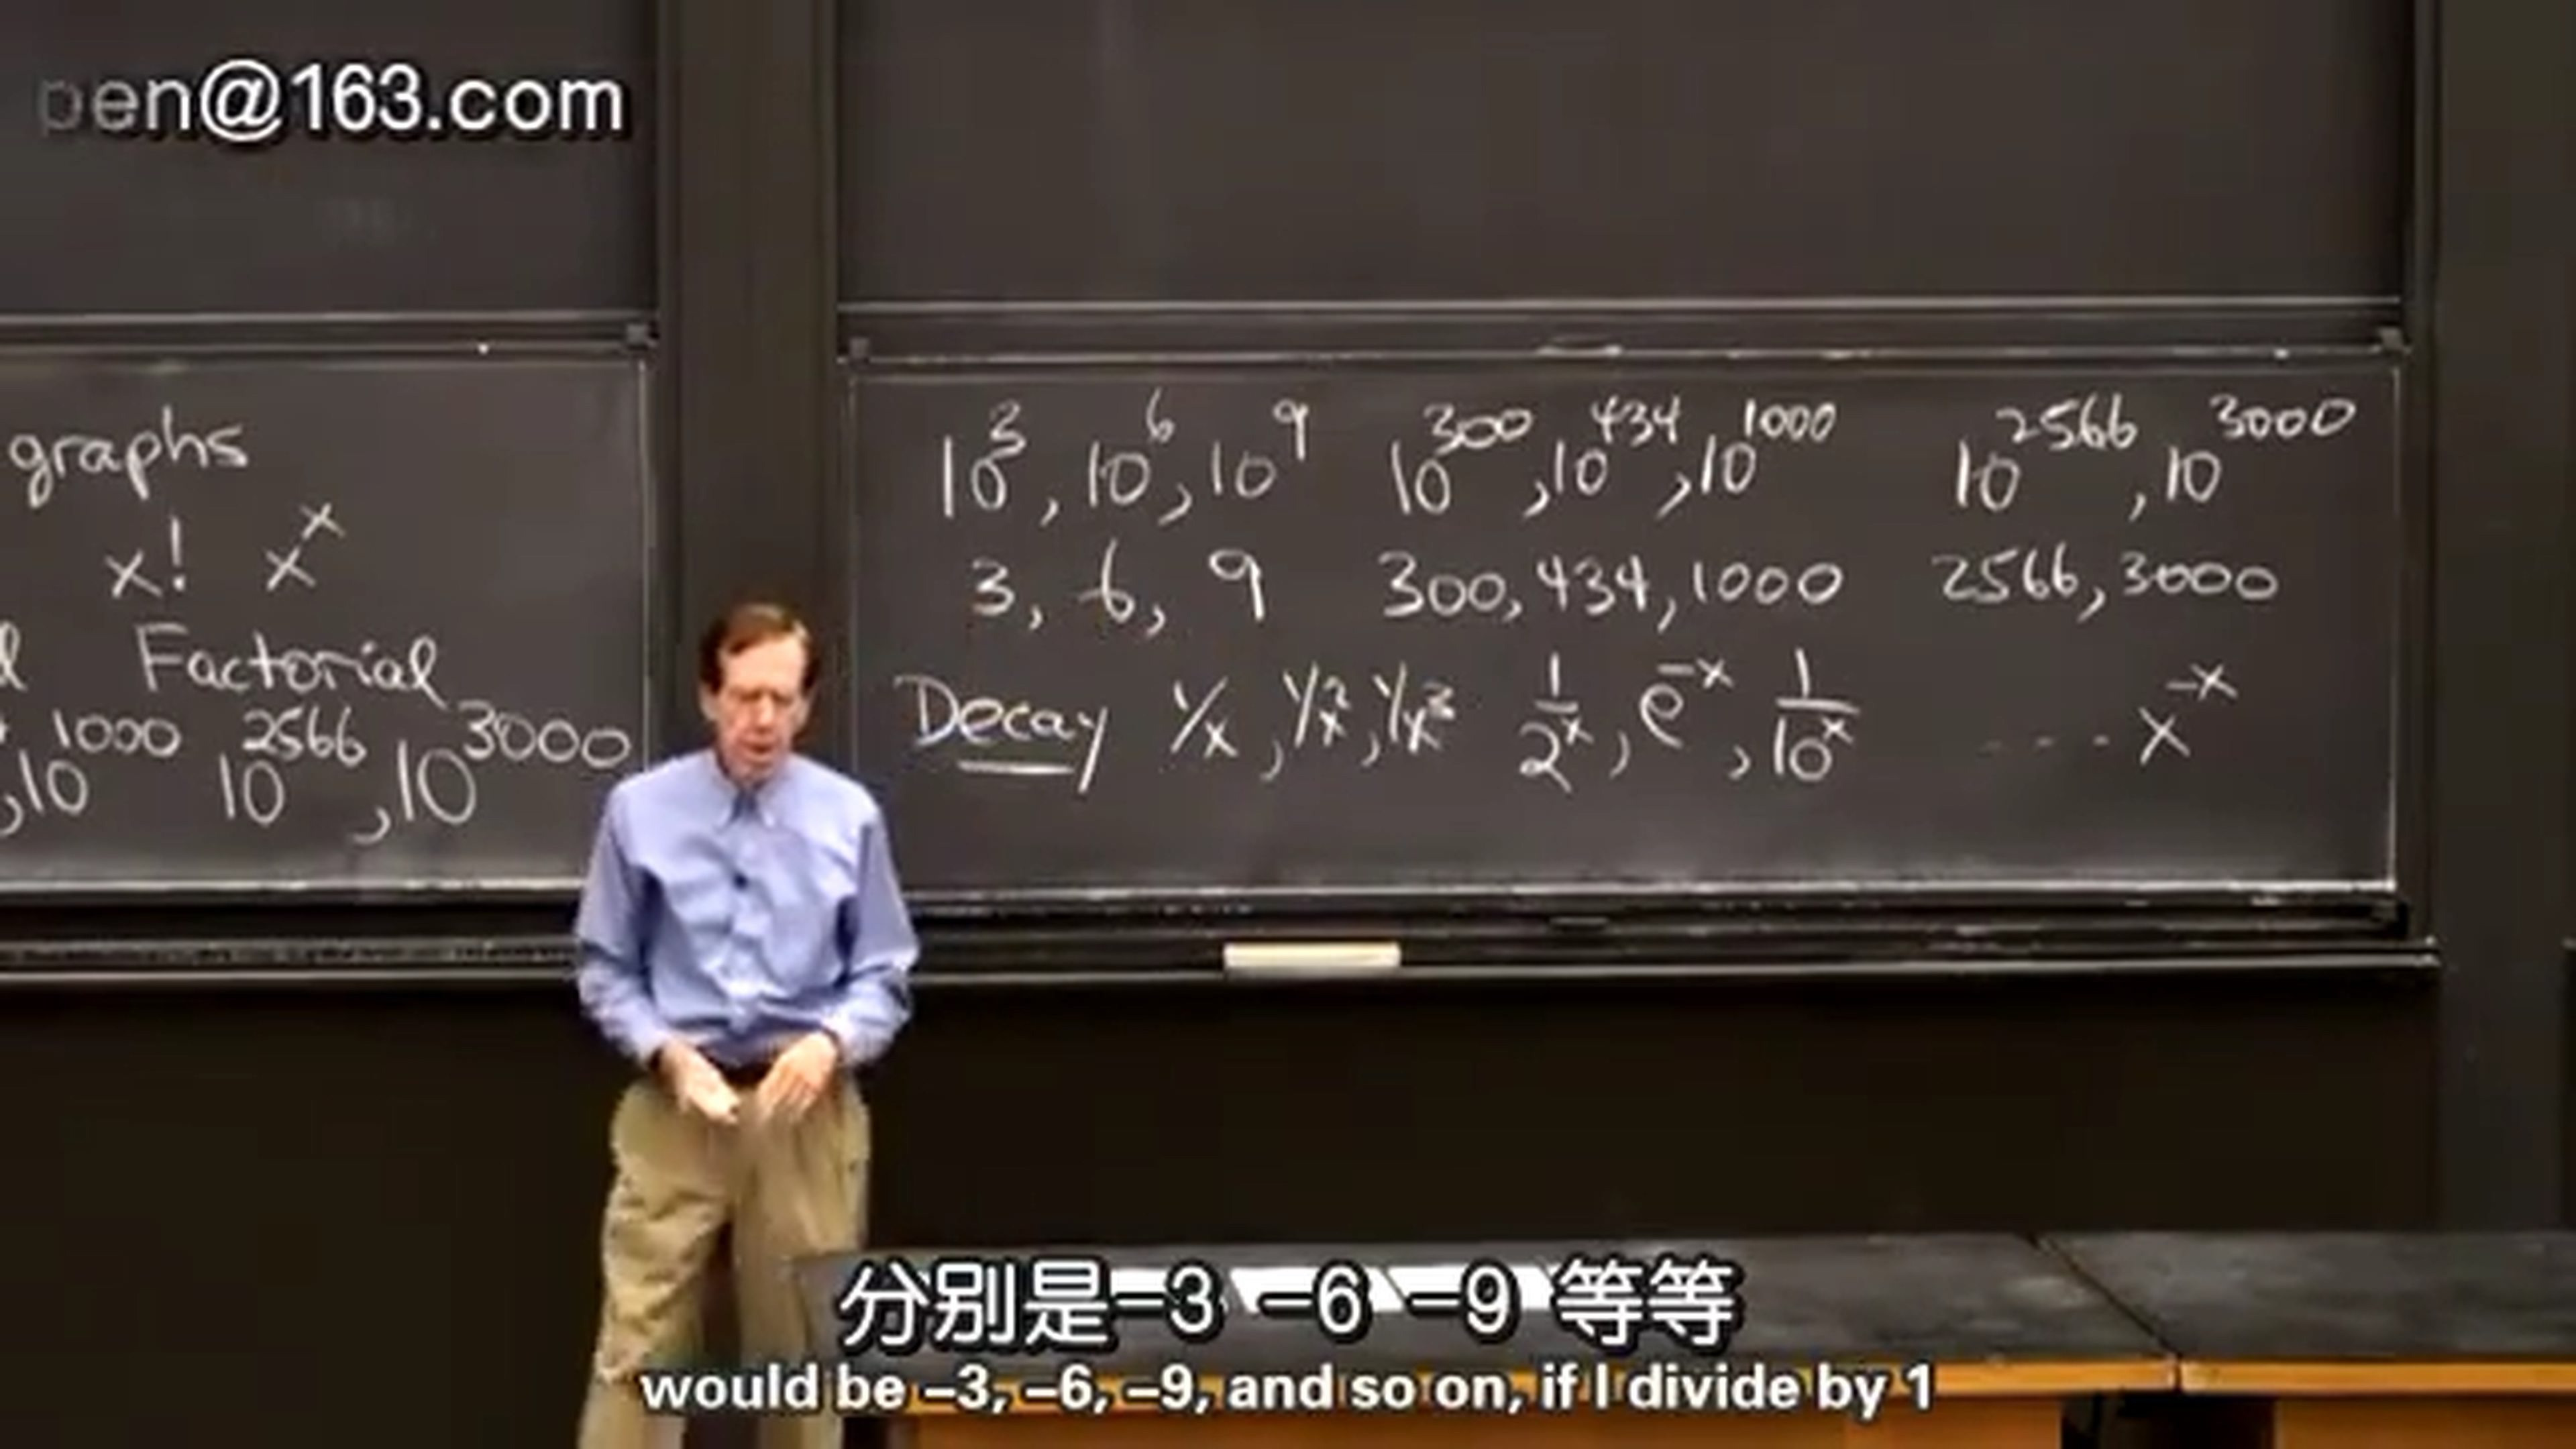 pen@163.com
graphs
x! xˣ
Factorial
,10¹⁰⁰⁰ 10²⁵⁶⁶, 10³⁰⁰⁰
10³, 10⁶, 10⁹ 10³⁰⁰, 10⁴³⁴, 10¹⁰⁰⁰ 10²⁵⁶⁶, 10³⁰⁰⁰
3, 6, 9 300, 434, 1000 2566, 3000
Decay 1/x, 1/x², 1/x³ 1/2ˣ, e⁻ˣ, 1/10ˣ ---- x⁻ˣ
分别是–3 –6 –9 等等
would be –3, –6, –9, and so on, if I divide by 1